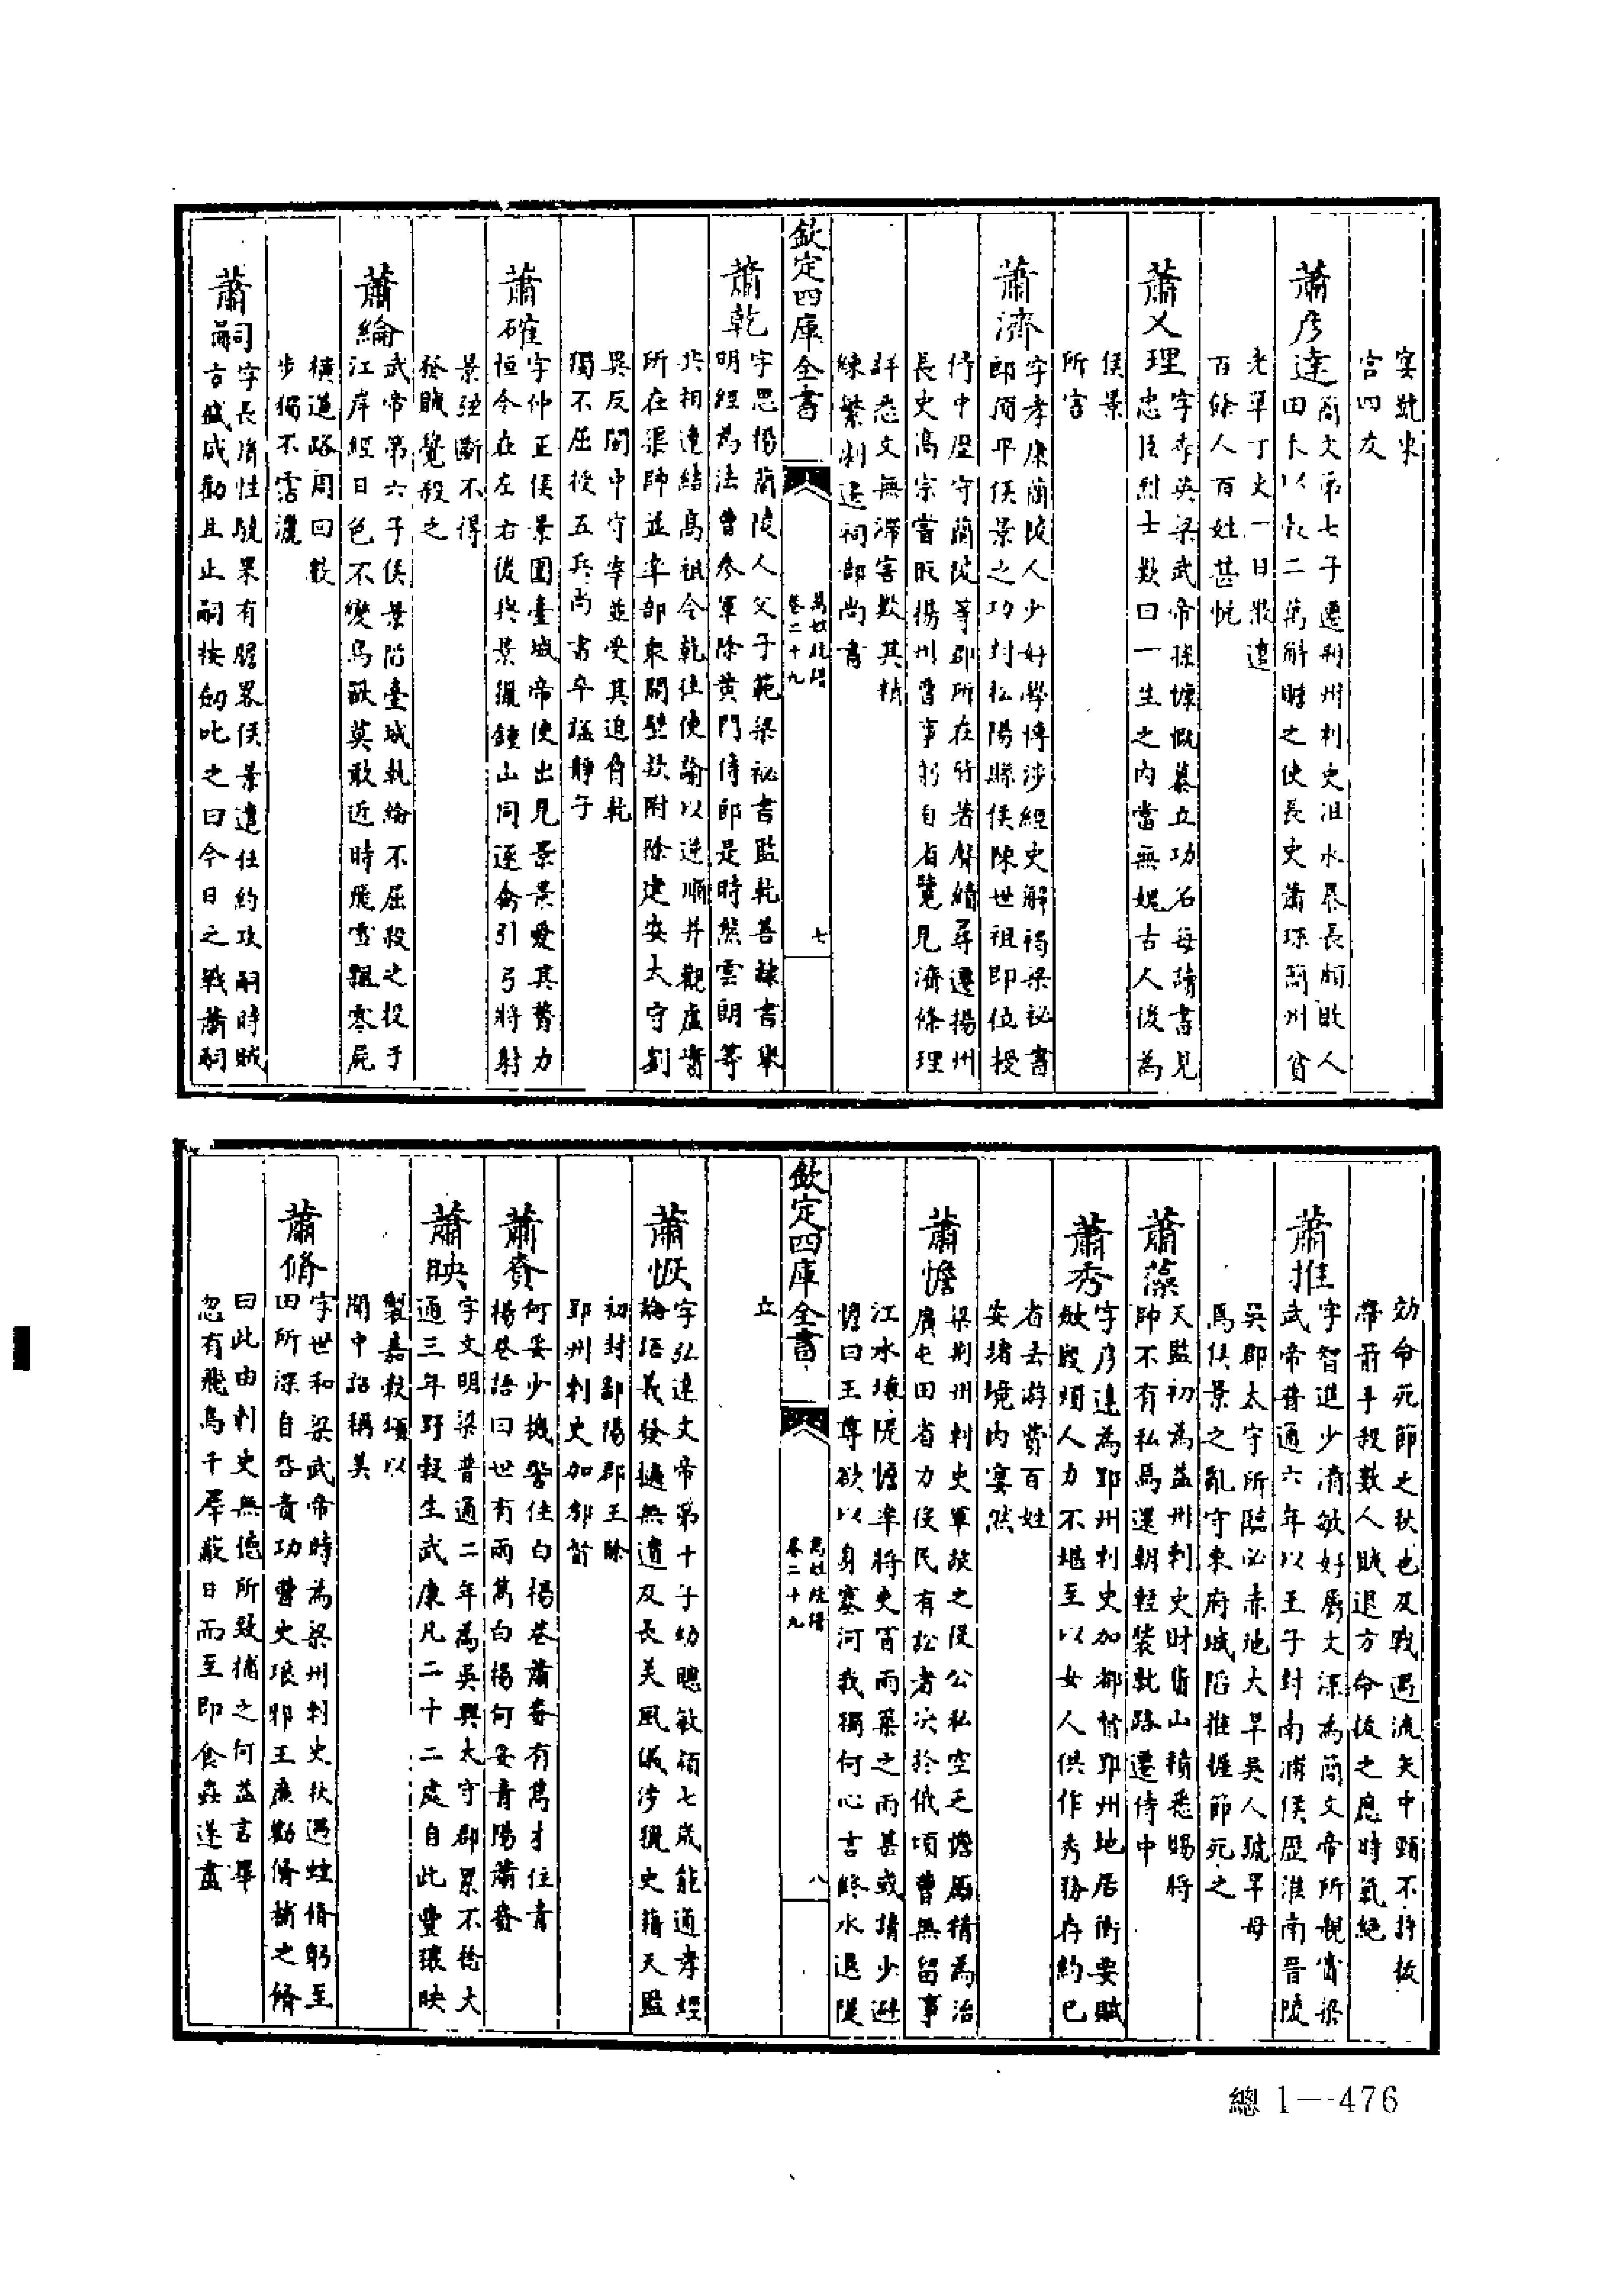 宴號東
宮四友
蕭彥達
簡文弟七子遷荆州刺史沮水暴長頗敗人
田 以米二萬斛賙之使長史蕭琛簡州貧
老單丁史一日散遣
百餘人百姓甚悦
蕭乂理
字季英梁武帝孫慷慨慕立功名每讀書見
忠臣烈士歎曰一生之内當無媿古人後為
侯景
所害
蕭濟
字孝康蘭陵人少好學博涉經史解褐梁祕書
郎預平侯景之功封松陽縣侯陳世祖即位授
侍中歷守蘭陵等郡所在皆著聲績尋遷揚州
長史高宗嘗取揚州曹事躬自省覽見濟條理
詳悉文無滯害歎其精
練繁劇遷祠部尚書
欽定四庫全書
萬姓統譜
卷二十九
七
蕭乾
字思揚蘭陵人父子範梁祕書監乾善隸書舉
明經為法曹參軍除黄門侍郎是時熊雲朗等
共相連結高祖令乾往使諭以逆順并觀虛實
所在渠帥並率部衆開壁欵附除建安太守劉
異反閩中守宰並受其迫脅乾
獨不屈後五兵尚書卒諡靜子
蕭確
字仲正侯景圍臺城帝使出見景景愛其膂力
恒令在左右後與景獵鍾山同逐禽引弓將射
景弦斷不得
發賊覺殺之
蕭綸
武帝第六子侯景陷臺城執綸不屈殺之投于
江岸經日色不變鳥獸莫敢近時飛雪飄零屍
橫道路周回數
步獨不霑灑
蕭嗣
字長胤性驍果有膽畧侯景遣任約攻嗣時賊
方盛咸勸且止嗣按劒叱之曰今日之戰蕭嗣
効命死節之秋也及戰遇流矢中頸不許拔
帶箭手殺數人賊退方命拔之應時氣絶
蕭推
字智進少清敏好屬文深為簡文帝所親賞梁
武帝普通六年以王子封南浦侯歴淮南晉陵
吳郡太守所臨必赤地大旱吳人號旱母
焉侯景之亂守東府城陷推握節死之
蕭藻
天監初為益州刺史財貨山積悉賜將
帥不有私焉還朝輕裝就路遷侍中
蕭秀
字彥達為郢州刺史加都督郢州地居衝要賦
斂殷煩人力不堪至以女人供作秀務存約已
省去游費百姓
安堵境内宴然
蕭憺
梁荆州刺史軍旅之後公私空乏憺厲精為治
廣屯田省力役民有訟者决於俄頃曹無留事
江水壞隄憺率將吏冒雨築之雨甚或請少避
憺曰王尊欲以身塞河我獨何心言終水退隄
立
欽定四庫全書
萬姓統譜
卷二十九
八
蕭恢
字弘達文帝第十子幼聰敏穎七歲能通孝經
論語義發擿無遺及長美風儀涉獵史籍天監
初封鄱陽郡王除
郢州刺史加都督
蕭賁
何妥少機警住白楊巷蕭賁有雋才住青
楊巷語曰世有兩雋白楊何妥青陽蕭賁
蕭映
字文明梁普通二年為吳興太守郡累不稔大
通三年野穀生武康凡二十二處自此豐穰映
製嘉穀頌以
聞中詔稱美
蕭脩
字世和梁武帝時為梁州刺史秋遇蝗脩躬至
田所深自咎責功曹史琅邪王廉勸脩捕之脩
曰此由刺史無德所致捕之何益言畢
忽有飛鳥千羣蔽日而至即食蟲遂盡
總 1—476